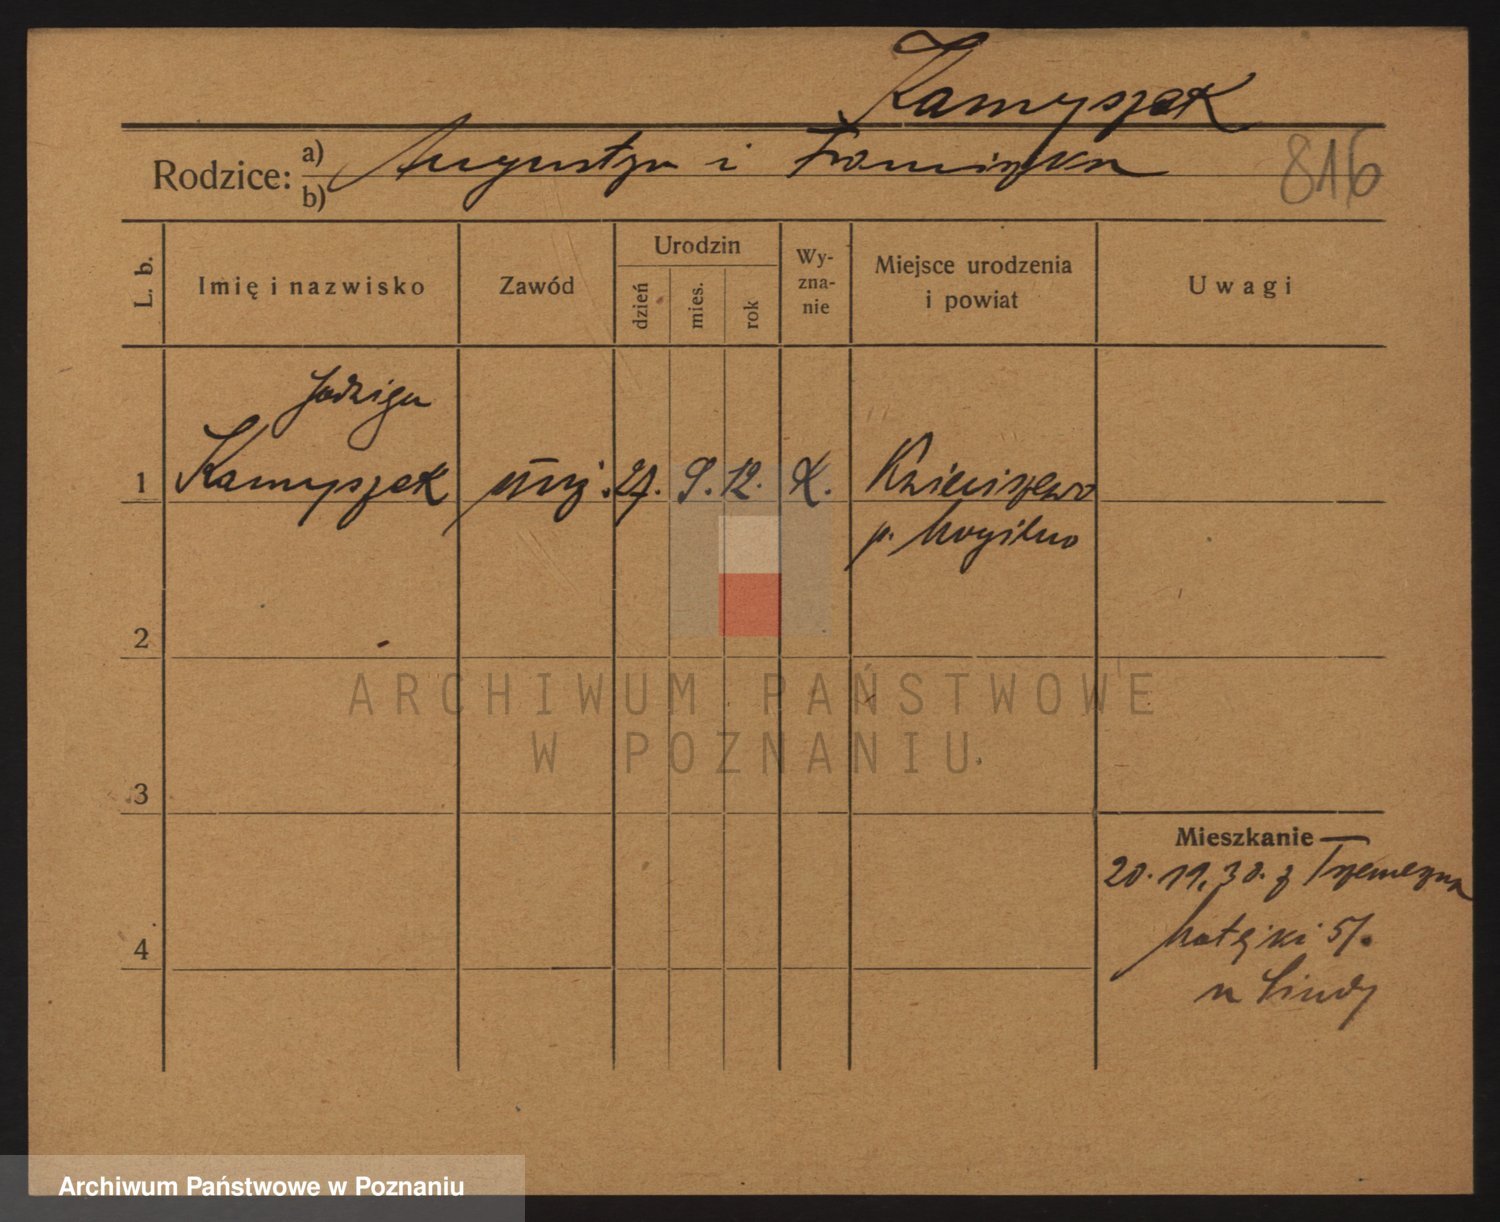 Kamyszek
Rodzice: a) Augustyn i Franciszka
b)
816
L. b.
Imię i nazwisko
Zawód
Urodzin
dzień
mies.
rok
Wy-
zna-
nie
Miejsce urodzenia
i powiat
Uwagi
Jadwiga
1 Kamyszek 27. 9. 12. K. Kwieciszewo
p. Mogilno
2
3
4
Mieszkanie
20. 11. 30. z Trzemeszna
Matejki 51.
u Lindy
ARCHIWUM PAŃSTWOWE
W POZNANIU
Archiwum Państwowe w Poznaniu